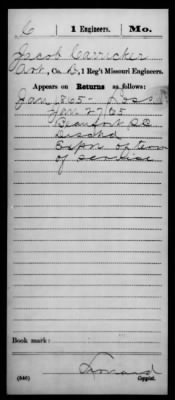 C | 1 Engineers. | Mo.
Jacob Carricker
Art., Co. C, 1 Reg't Missouri Engineers.
Appears on Returns as follows:
Jan 1865 - Loss
Jan 27/65
Beaufort, S.C.
Dischd
Expn of term
of service
Book mark:
(546)
Copyist.